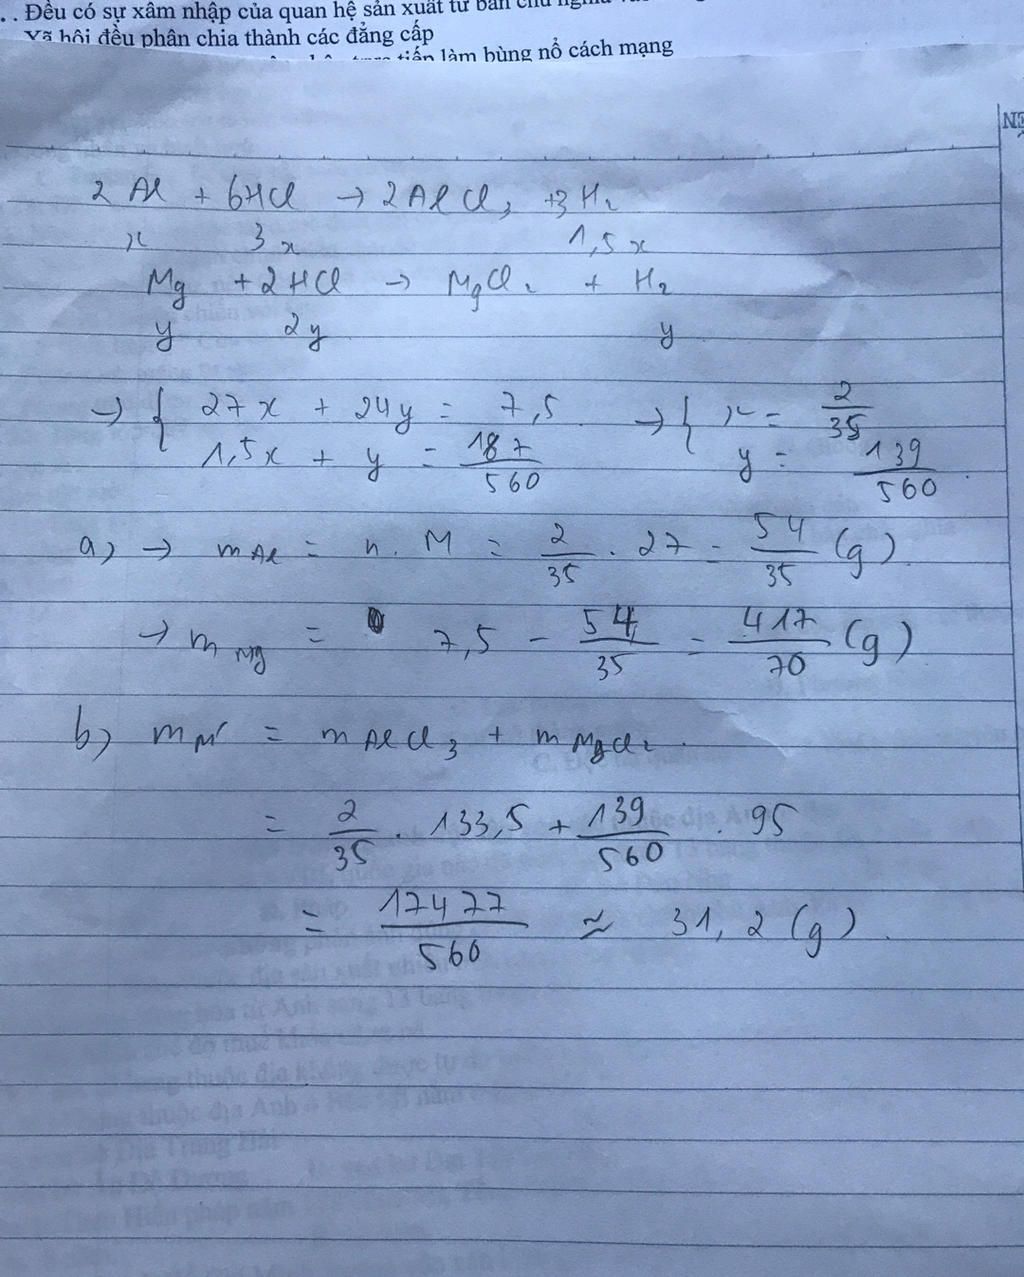 . . Đều có sự xâm nhập của quan hệ sản xuất tư bản chủ nghĩa
Xã hội đều phân chia thành các đẳng cấp
tiếp làm bùng nổ cách mạng
2Al + 6HCl → 2AlCl3 + 3H2
x 3x 1,5x
Mg + 2HCl → MgCl2 + H2
y 2y y
→ { 27x + 24y = 7,5 → { x = 2/35
1,5x + y = 187/560 y = 139/560
a) → mAl = n . M = 2/35 . 27 = 54/35 (g)
→ mMg = 7,5 - 54/35 = 417/70 (g)
b) mM' = mAlCl3 + mMgCl2
= 2/35 . 133,5 + 139/560 . 95
= 17477/560 ≈ 31,2 (g)